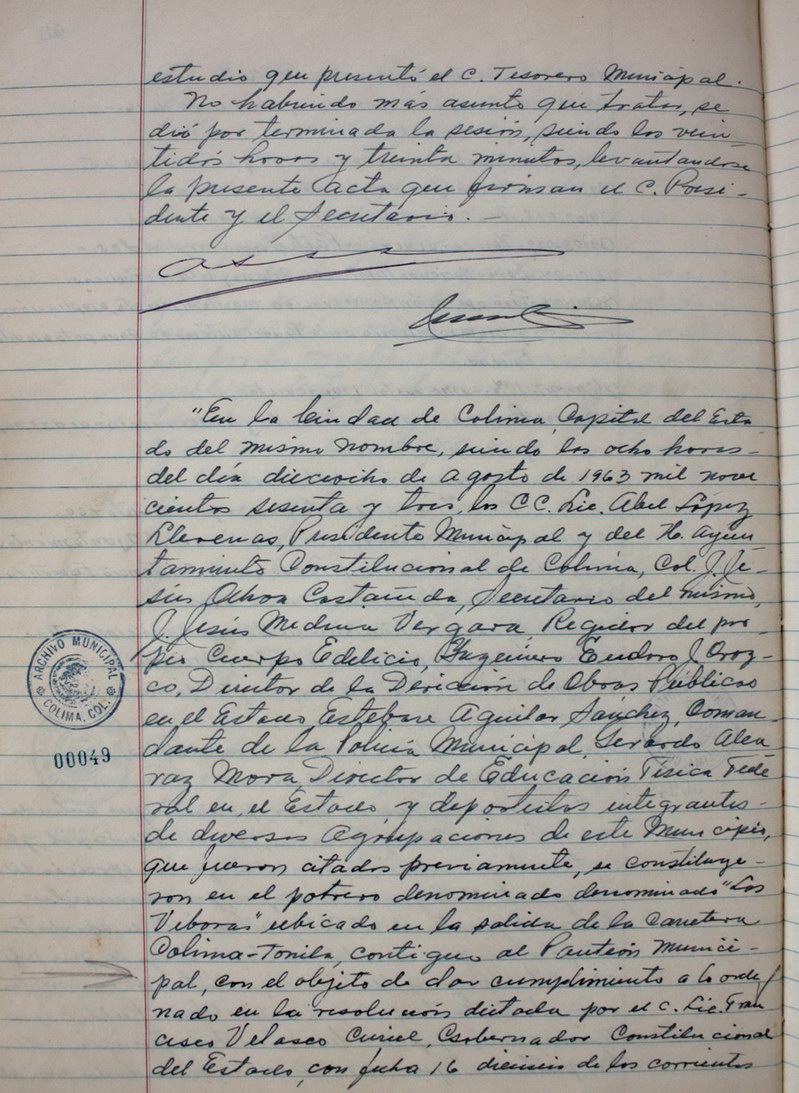 estudio que presentó el C. Tesorero Municipal.
No habiendo más asunto que tratar, se
dió por terminada la sesión, siendo las vein-
tidós horas y treinta minutos, levantandose
la presente acta que firman el C. Presi-
dente y el Secretario. -
"En la Ciudad de Colima, Capital del Esta
do del mismo nombre, siendo las ocho horas-
del día dieciocho de agosto de 1963 mil nove
cientos sesenta y tres, los CC. Lic. Abel López
Llerenas, Presidente Municipal y del H. Ayun
tamiento Constitucional de Colima, Col. J. Je-
sús Ochoa Castañeda, Secretario del mismo,
J. Jesús Medina Vergara, Regidor del pro-
pio Cuerpo Edilicio, Ingeniero Eudoro J. Oroz-
co, Director de la Dirección de Obras Públicas
en el Estado, Esteban Aguilar Sánchez, Coman-
dante de la Policía Municipal, Gerardo Alca
raz Mora, Director de Educación Física Fede
ral en el Estado y deportistas integrantes-
de diversas Agrupaciones de este Municipio,
que fueron citados previamente, se constituye-
ron en el potrero denominado denominado "Las
Víboras" ubicado en la salida de la Carretera
Colima-Tonila, contiguo al Panteón Munici-
pal, con el objeto de dar cumplimiento a lo orde
nado en la resolución dictada por el C. Lic. Fran
cisco Velasco Curiel, Gobernador Constitucional
del Estado, con fecha 16 dieciseis de los corrientes
ARCHIVO MUNICIPAL
COLIMA, COL.
00049